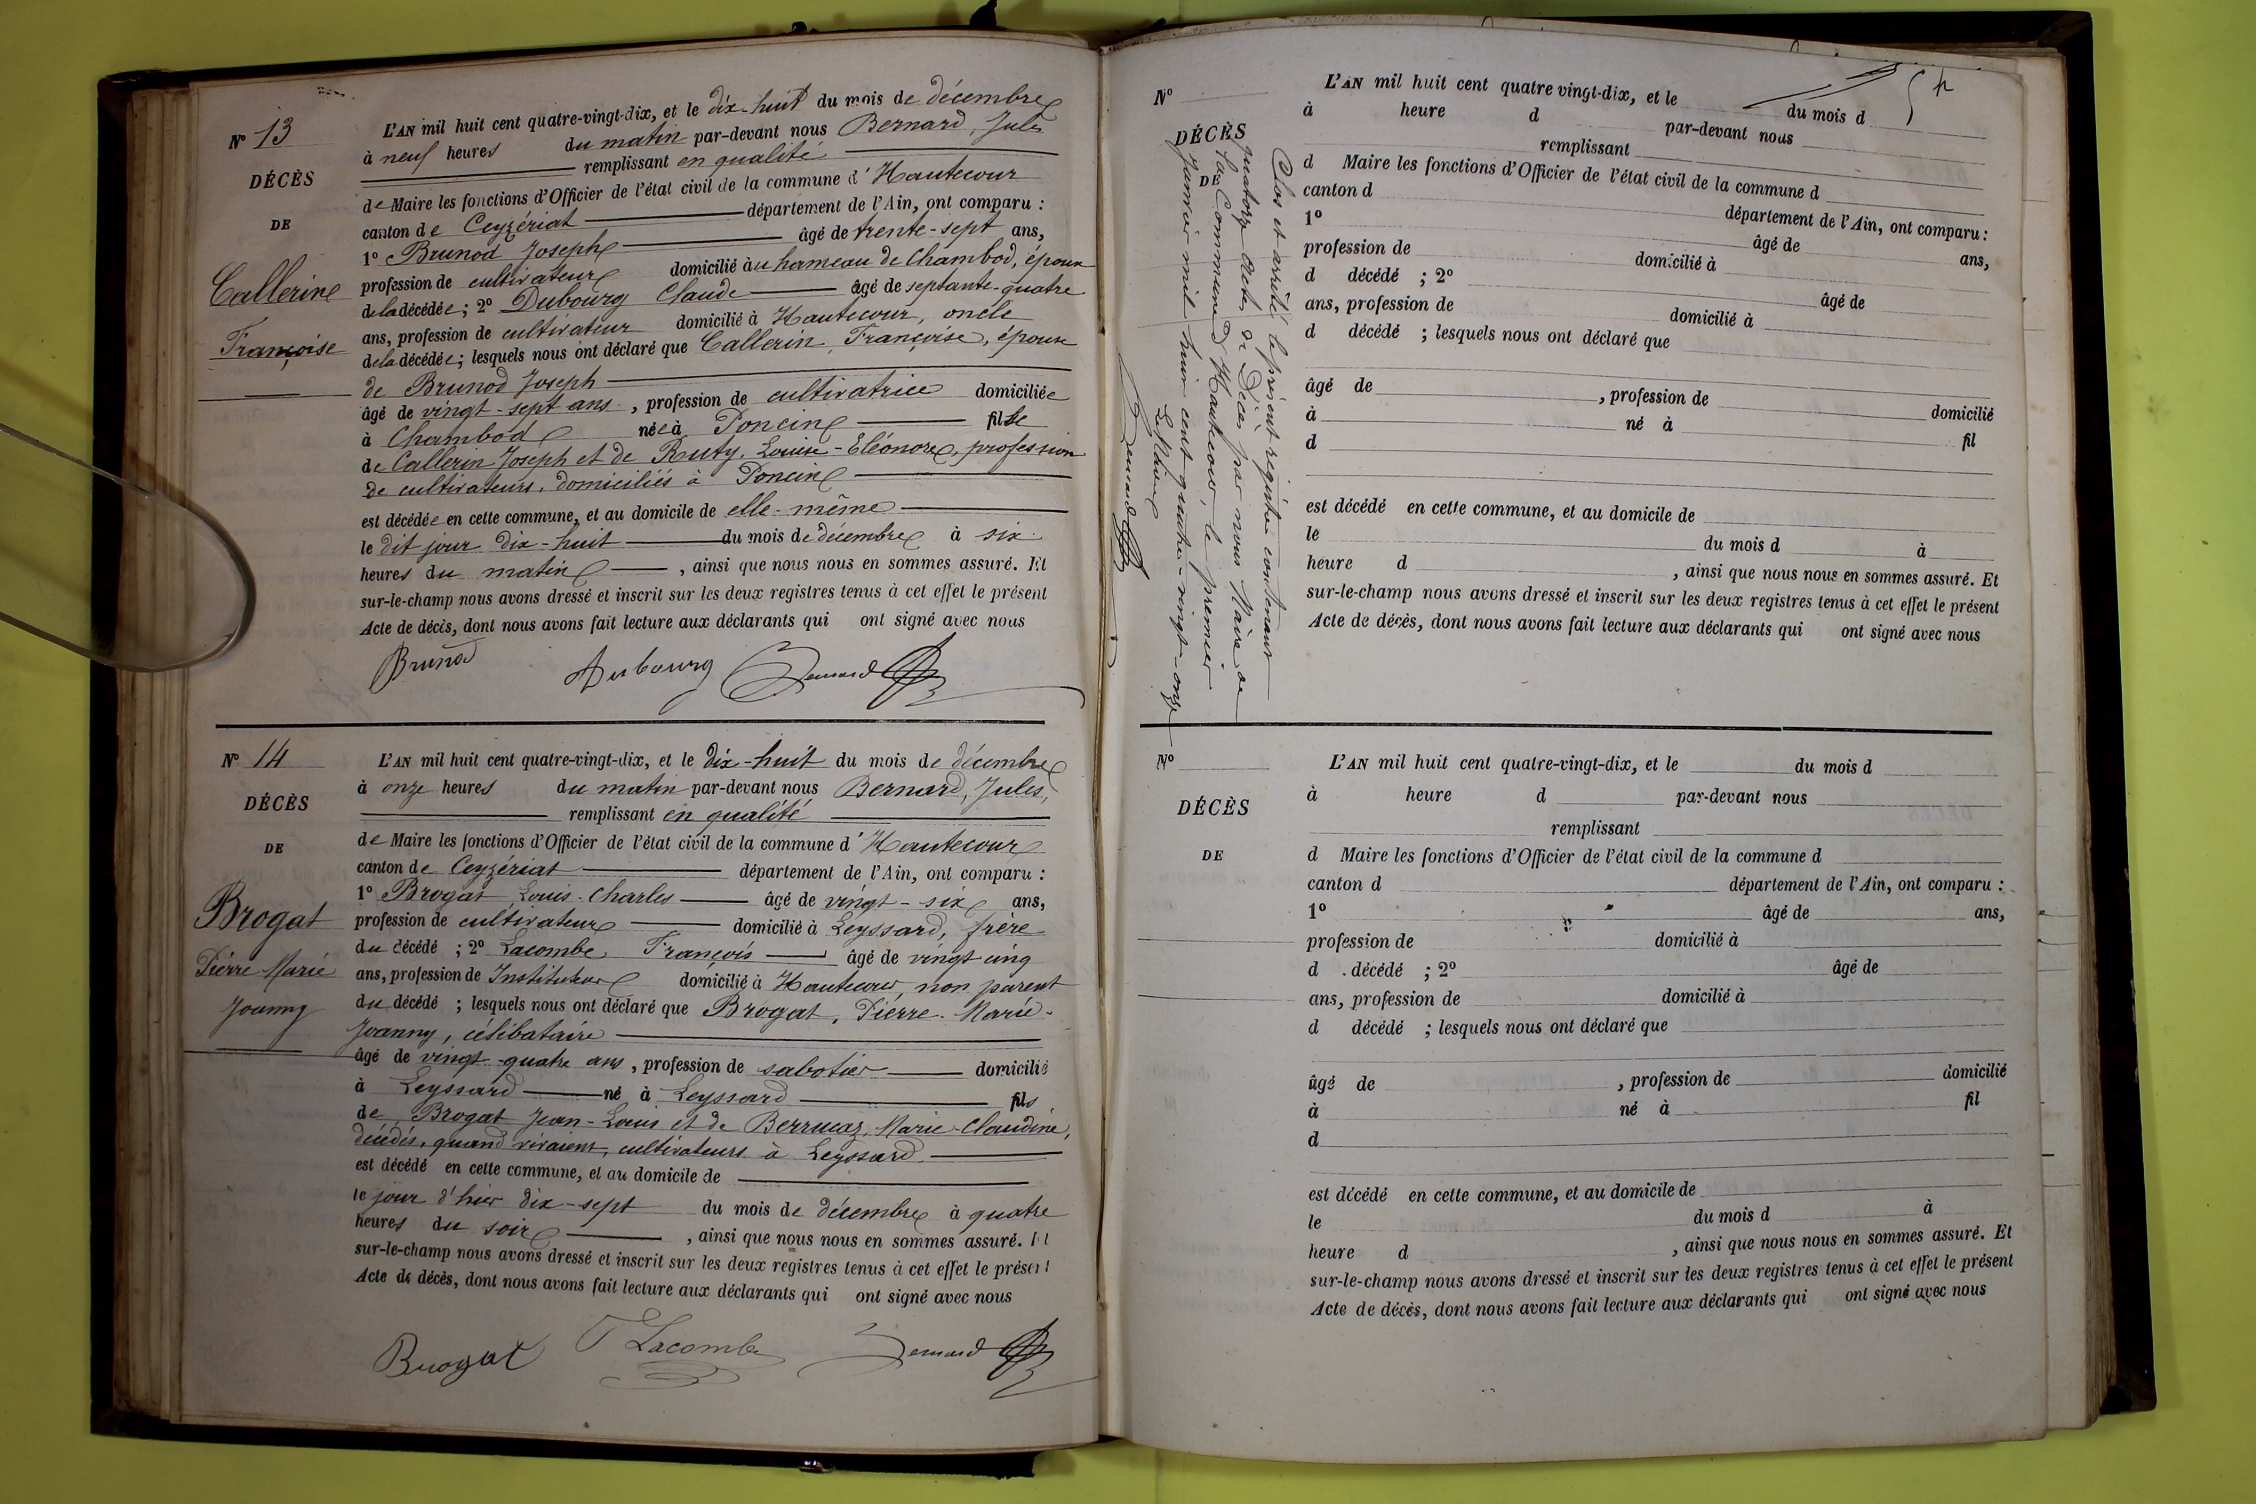 N° 13
DÉCÈS
DE
Callerine
Françoise
L'AN mil huit cent quatre-vingt-dix, et le dix-huit du mois de décembre
à neuf heures du matin par-devant nous Bernard, Jules
remplissant en qualité
de Maire les fonctions d'Officier de l'état civil de la commune d'Hautecour
canton de Ceyzériat département de l'Ain, ont comparu :
1° Brunod Joseph âgé de trente-sept ans,
profession de cultivateur domicilié au hameau de Chambod, époux
de la décédée ; 2° Dubourg Claude âgé de septante-quatre
ans, profession de cultivateur domicilié à Hautecour, oncle
de la décédée ; lesquels nous ont déclaré que Callerin, Françoise, épouse
de Brunod Joseph
âgé de vingt-sept ans, profession de cultivatrice domiciliée
à Chambod née à Poncin fille
de Callerin Joseph et de Ruty, Louise-Eléonore, profession
de cultivateurs, domiciliés à Poncin
est décédée en cette commune, et au domicile de elle-même
le dit jour dix-huit du mois de décembre à six
heures du matin, ainsi que nous nous en sommes assuré. Et
sur-le-champ nous avons dressé et inscrit sur les deux registres tenus à cet effet le présent
Acte de décès, dont nous avons fait lecture aux déclarants qui ont signé avec nous
Brunod Dubourg Bernard
N° 14
DÉCÈS
DE
Brogat
Pierre-Marie
Joanny
L'AN mil huit cent quatre-vingt-dix, et le dix-huit du mois de décembre
à onze heures du matin par-devant nous Bernard, Jules,
remplissant en qualité
de Maire les fonctions d'Officier de l'état civil de la commune d'Hautecour
canton de Ceyzériat département de l'Ain, ont comparu :
1° Brogat Louis-Charles âgé de vingt-six ans,
profession de cultivateur domicilié à Leyssard, frère
du décédé ; 2° Lacombe François âgé de vingt cinq
ans, profession de Instituteur domicilié à Hautecour, non parent
du décédé ; lesquels nous ont déclaré que Brogat, Pierre-Marie-
Joanny, célibataire
âgé de vingt-quatre ans, profession de sabotier domicilié
à Leyssard né à Leyssard fils
de Brogat Jean-Louis et de Berrucaz, Marie-Claudine,
décédés, quand vivaient, cultivateurs à Leyssard.
est décédé en cette commune, et au domicile de
le jour d'hier dix-sept du mois de décembre à quatre
heures du soir, ainsi que nous nous en sommes assuré. Et
sur-le-champ nous avons dressé et inscrit sur les deux registres tenus à cet effet le présent
Acte de décès, dont nous avons fait lecture aux déclarants qui ont signé avec nous
Brogat F Lacombe Bernard
N°
DÉCÈS
DE
Clos et arrêté le présent registre contenant
quatorze actes de Décès par nous Maire de
la Commune d'Hautecour, le premier
Janvier mil huit cent quatre-vingt-onze
Le Maire
Bernard
L'AN mil huit cent quatre vingt-dix, et le du mois d
à heure d par-devant nous
remplissant
d Maire les fonctions d'Officier de l'état civil de la commune d
canton d département de l'Ain, ont comparu :
1° âgé de ans,
profession de domicilié à
d décédé ; 2° âgé de
ans, profession de domicilié à
d décédé ; lesquels nous ont déclaré que
âgé de , profession de domicilié
à né à fil
d
est décédé en cette commune, et au domicile de
le du mois d à
heure d , ainsi que nous nous en sommes assuré. Et
sur-le-champ nous avons dressé et inscrit sur les deux registres tenus à cet effet le présent
Acte de décès, dont nous avons fait lecture aux déclarants qui ont signé avec nous
N°
DÉCÈS
DE
L'AN mil huit cent quatre-vingt-dix, et le du mois d
à heure d par-devant nous
remplissant
d Maire les fonctions d'Officier de l'état civil de la commune d
canton d département de l'Ain, ont comparu :
1° âgé de ans,
profession de domicilié à
d décédé ; 2° âgé de
ans, profession de domicilié à
d décédé ; lesquels nous ont déclaré que
âgé de , profession de domicilié
à né à fil
d
est décédé en cette commune, et au domicile de
le du mois d à
heure d , ainsi que nous nous en sommes assuré. Et
sur-le-champ nous avons dressé et inscrit sur les deux registres tenus à cet effet le présent
Acte de décès, dont nous avons fait lecture aux déclarants qui ont signé avec nous